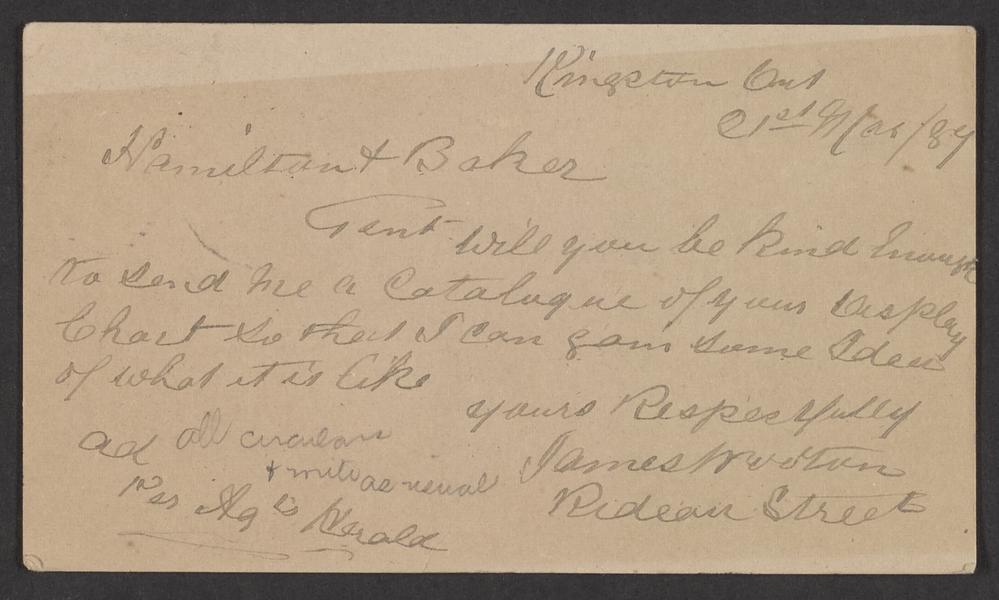 Kingston Ont
21st Mar/87
Hamilton & Baker
Gent Will you be kind Enough
to send me a Catalogue of your Display
Chart so that I can gain some Idea
of what it is like
yours Respectfully
James Wooton
Rideau Street
ad all circulars
& write as usual
Per Ag'ts Herald